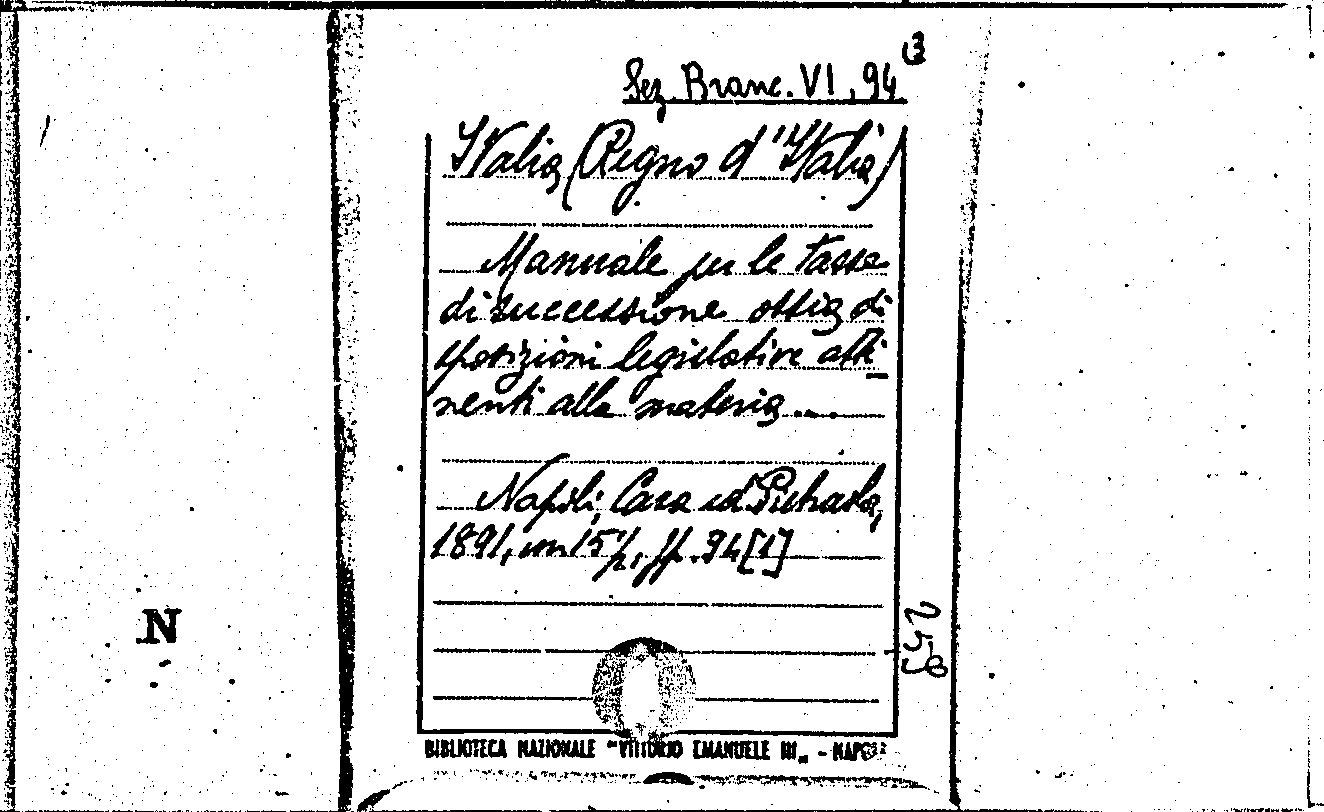 Sez. Branc. VI, 94 (3
Italia (Regno d'Italia)
Manuale per le tasse
di successione ossia di
sposizioni legislative atti
nenti alla materia ....
Napoli, Casa ed. Pietrasola,
1891, in 15°/, pp. 94 [1]
N
BIBLIOTECA NAZIONALE "VITTORIO EMANUELE III„ - NAPOLI